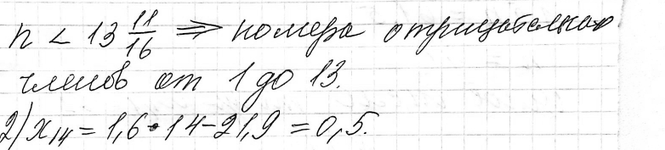 n < 13 11/16 ⇒ номера отрицательных
членов от 1 до 13.
2) x₁₄ = 1,6·14 – 21,9 = 0,5.